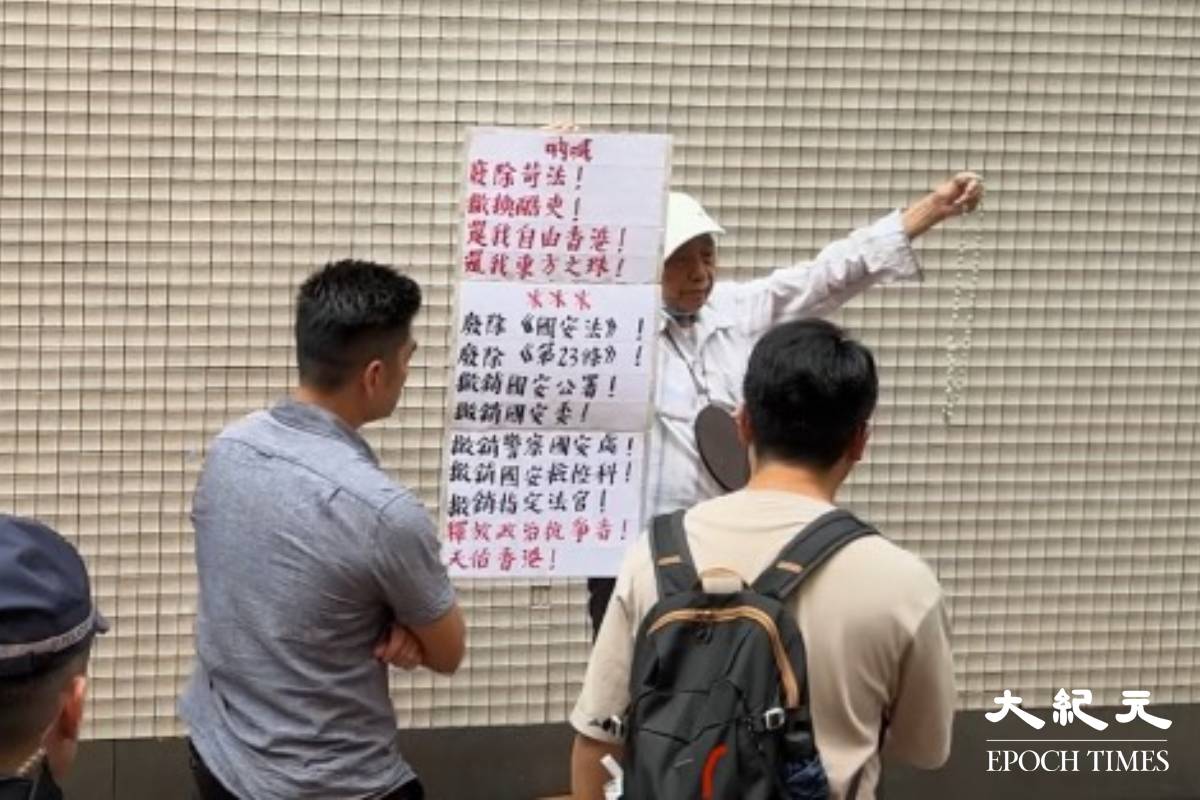 吶喊
廢除苛法！
撤換酷吏！
還我自由香港！
還我東方之珠！
***
廢除《國安法》！
廢除《第23條》！
撤銷國安公署！
撤銷國安委！
撤銷警察國安處！
撤銷國安檢控科！
撤銷指定法官！
釋放政治抗爭者！
天佑香港！
大紀元
EPOCH TIMES